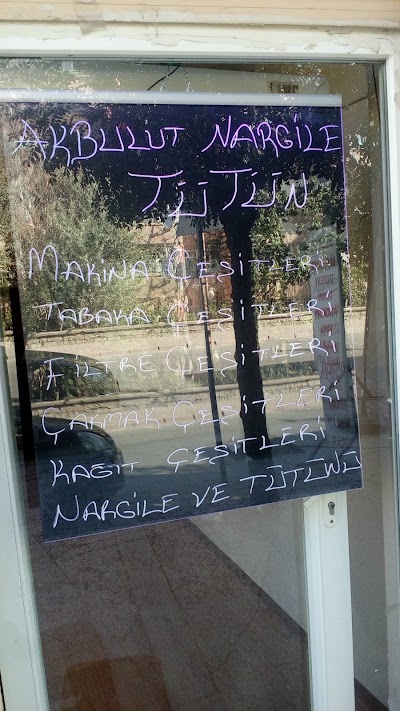 AKBULUT NARGİLE
TÜTÜN
MAKİNA ÇEŞİTLERİ
TABAKA ÇEŞİTLERİ
FİLTRE ÇEŞİTLERİ
ÇAKMAK ÇEŞİTLERİ
KAGIT ÇEŞİTLERİ
NARGİLE VE TÜTÜNÜ